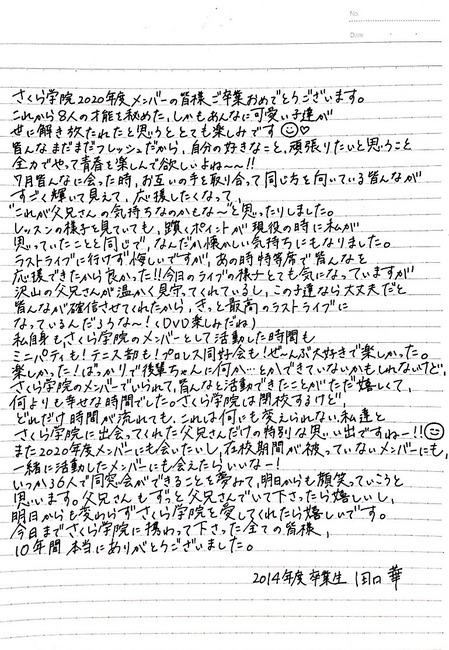 No.
Date
さくら学院2020年度メンバーの皆様ご卒業おめでとうございます。
これから8人の才能を秘めた、しかもあんなに可愛い子達が
世に解き放たれたと思うととても楽しみです☺♡
皆んなまだまだフレッシュだから、自分の好きなこと、頑張りたいと思うこと
全力でやって青春を楽しんで欲しいよね〜〜!!
7月皆んなに会った時、お互いの手を取り合って同じ方を向いている皆んなが
すごく輝いて見えて、応援したくなって、
"これが父兄さんの気持ちなのかもな〜"と思ったりしました。
レッスンの様子を見ていても、躓くポイントが現役の時に私が
思っていたことと同じで、なんだか懐かしい気持ちにもなりました。
ラストライブに行けず悔しいですが、あの時特等席で皆んなを
応援できたから良かった!!今日のライブの様子とても気になっていますが
沢山の父兄さんが温かく見守ってくれているし、この子達なら大丈夫だと
皆んなが確信させてくれたから、きっと最高のラストライブに
なっているんだろうな〜!(DVD楽しみだね)
私自身もさくら学院のメンバーとして活動した時間も
ミニパティも!テニス部も!プロレス同好会も!ぜーんぶ大好きで楽しかった。
楽しかった!ばっかりで後輩ちゃんに何か…とかできていないかもしれないけど、
さくら学院のメンバーでいられて、皆んなと活動できたことがただ嬉しくて、
何よりも幸せな時間でした。さくら学院は閉校するけど、
どれだけ時間が流れても、これは何にも変えられない、私達と
さくら学院に出会ってくれた父兄さんだけの特別な思い出ですねー!!☺
また2020年度メンバーにも会いたいし、在校期間が被っていないメンバーにも、
一緒に活動したメンバーにも会えたらいいなー!
いつか36人で同窓会ができることを夢みて、明日からも顔笑っていこうと
思います。父兄さんもずっと父兄さんでいて下さったら嬉しいし、
明日からも変わらずさくら学院を愛してくれたら嬉しいです。
今日までさくら学院に携わって下さった全ての皆様、
10年間本当にありがとうございました。
2014年度卒業生 田口 華